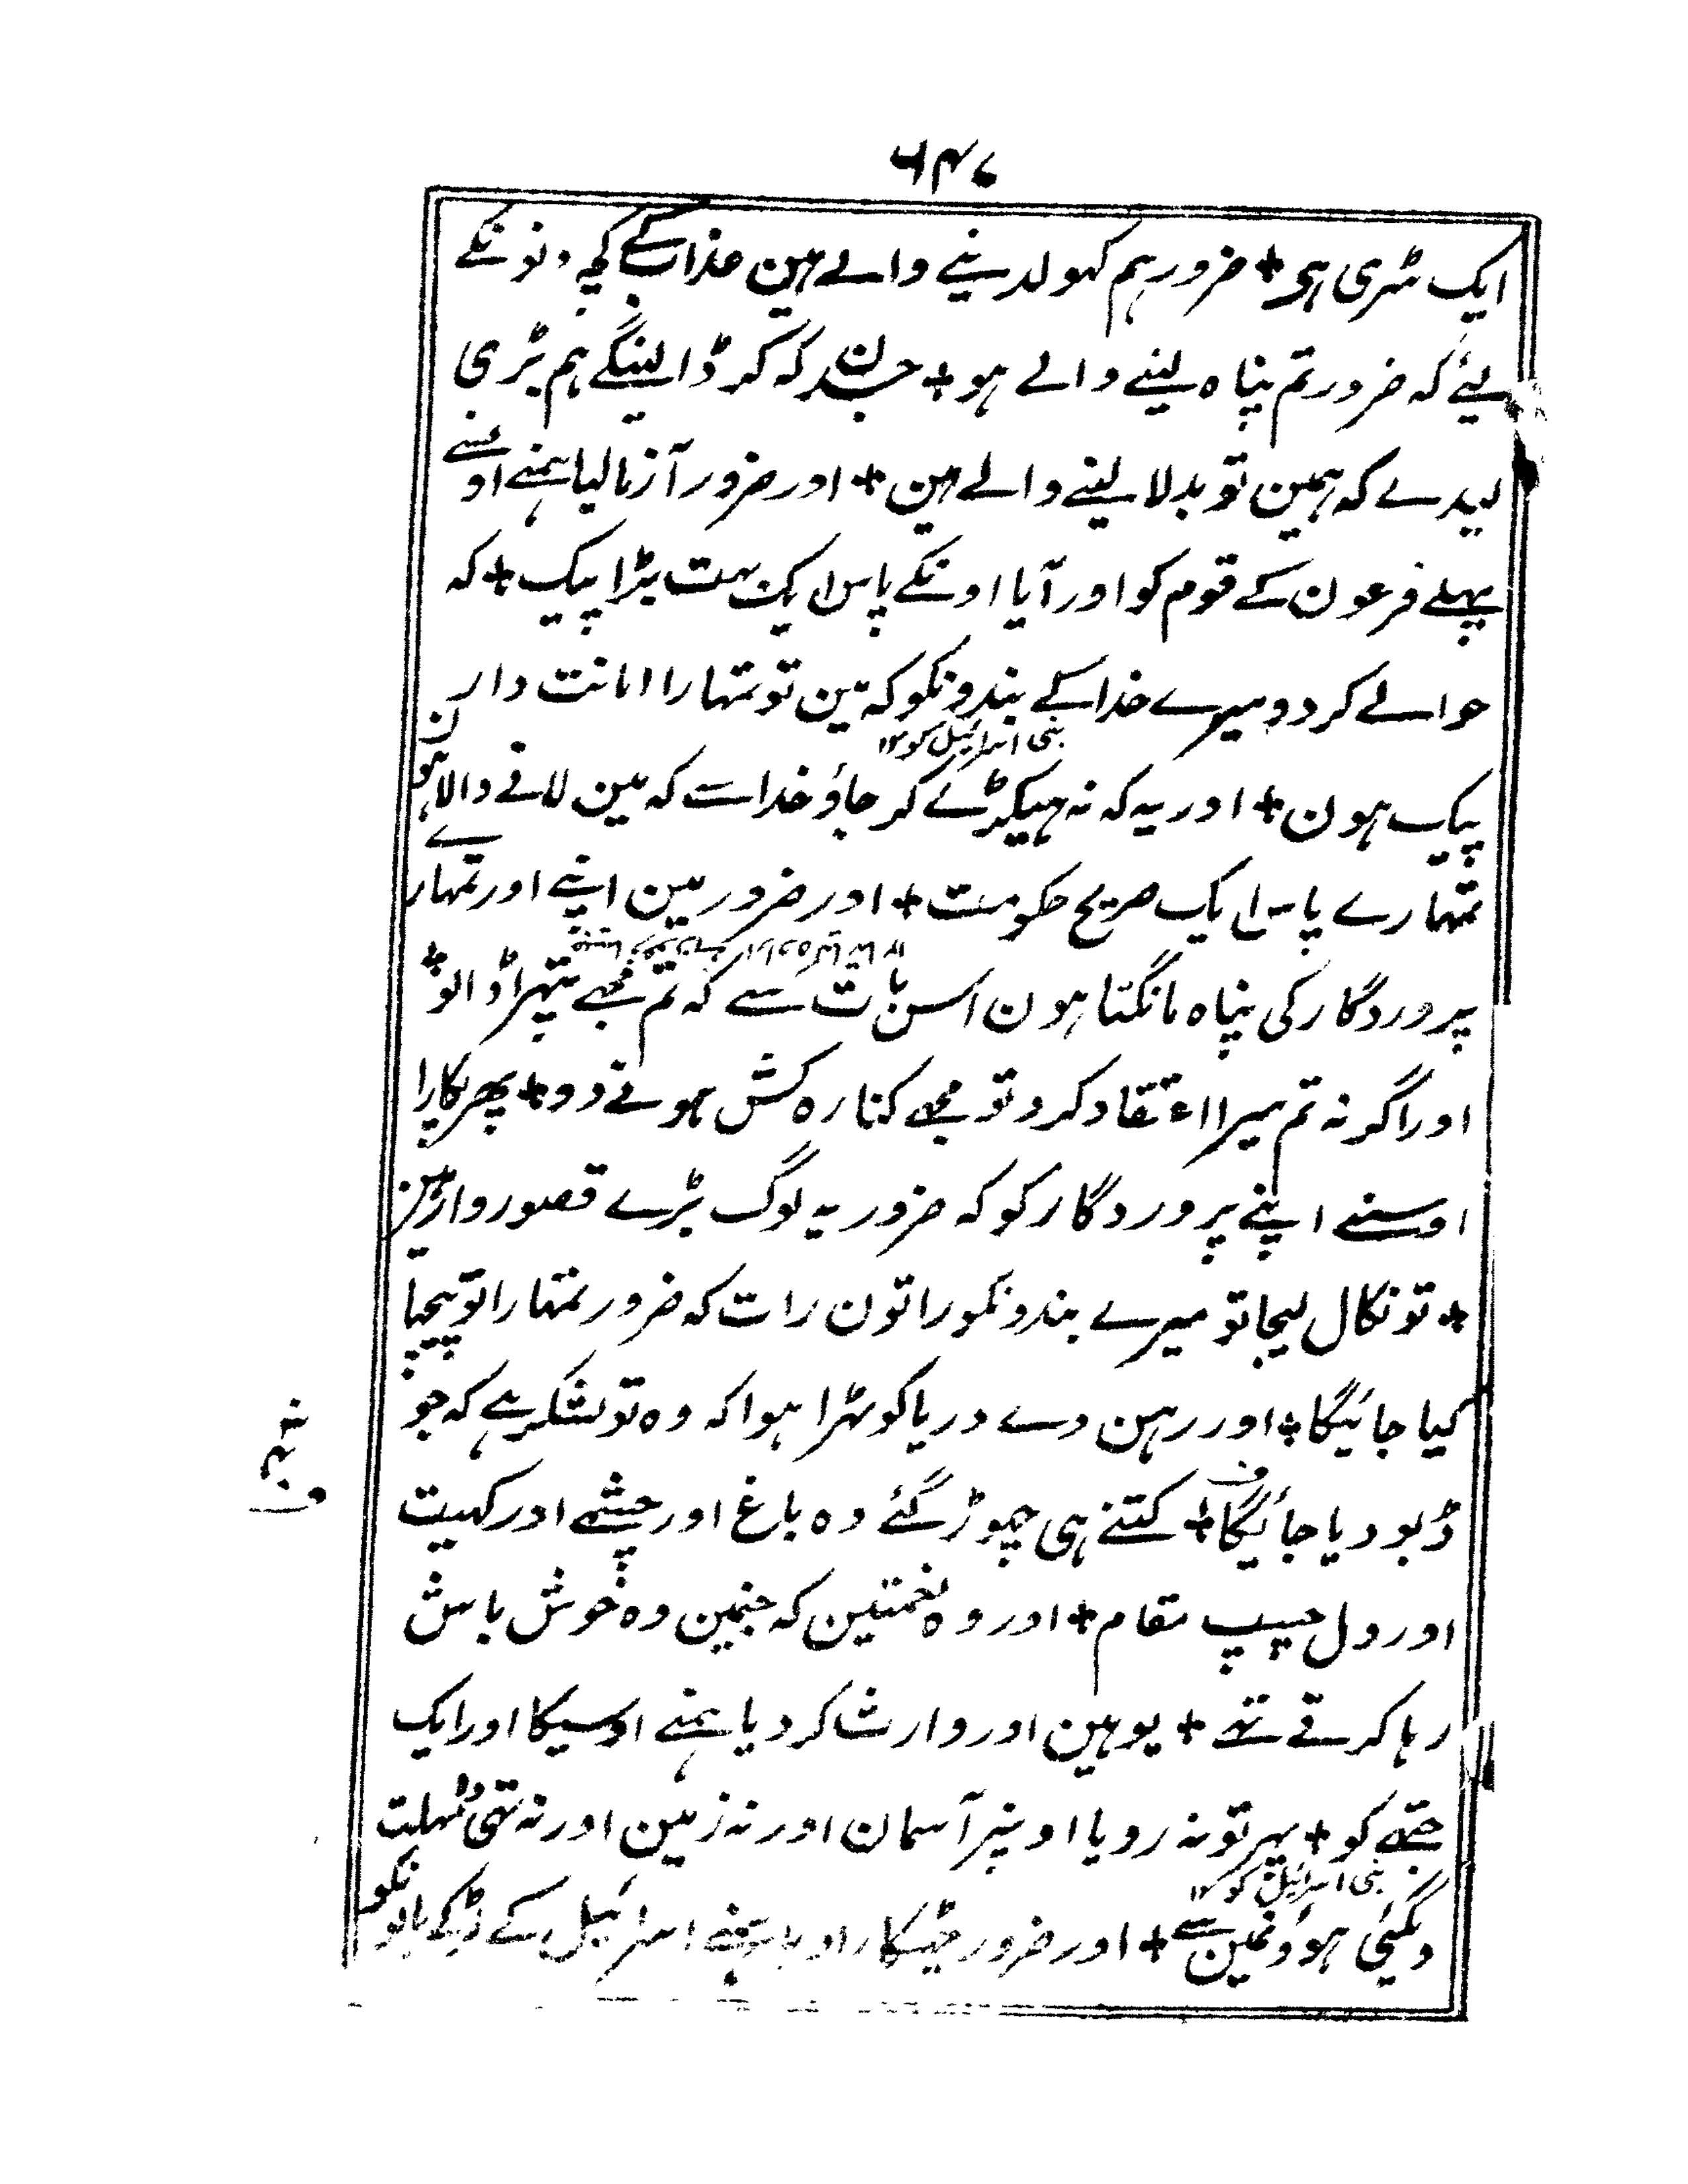 ۶۴۷
ایک سڑی ہی + ضرور ہم کہولدینے والے ہین عذاب کے کچہ دنونکے
لیئے کہ ضرور تم پناہ لینے والے ہو + جسدن کہ کر ڈالینگے ہم بڑی
لیدے کہ ہمین تو بدلا لینے والے ہین + اور ضرور آزما لیا ہمنے اونسے
پہلے فرعون کے قوم کو اور آیا اونکے پاس ایک بہت بڑا پیک + کہ
حوالے کردو میرے خدا کے بندونکو کہ مین تو تمہارا امانت دار
بنی اسرائیل کو ۱۲
پیک ہون + اور یہ کہ نہ ہیکڑے کر جاؤ خدا سے کہ مین لانے والا ہون
تمہارے پاس ایک صریح حکومت + اور ضرور مین اپنے اور تمہارے
پروردگار کی پناہ مانگتا ہون اس بات سے کہ تم مجھے پتہراؤ ڈالو +
اور اگر نہ تم میرا اعتقاد کرو تو مجھے کنارہ کش ہونے دو + پھر پکارا
اوسنے اپنے پروردگار کو کہ ضرور یہ لوگ بڑے قصور وار ہین
+ تو نکال لیجا تو میرے بندونکو راتون رات کہ ضرور تمہارا تو پیچہا
کیا جائیگا + اور رہن دے دریا کو ٹہرا ہوا کہ وہ تو لشکر ہے کہ جو
ڈبو دیا جائیگا + کتنے ہی چہوڑ گئے وہ باغ اور چشمے اور کہیت
اور دل چسپ مقام + اور وہ نعمتین کہ جنمین وہ خوش باش
رہا کرتے تہے + یوہین اور وارث کر دیا ہمنے اوسیکا اور ایک
جتہے کو + پہر تو نہ رویا اونپر آسمان اور نہ زمین اور نہ تہی وہ مہلت
بنی اسرائیل کو ۱۲
دیگئی ہوؤنمین سے + اور ضرور چہٹکارا دیا ہمنے اسرائیل کے لڑکے بالونکو